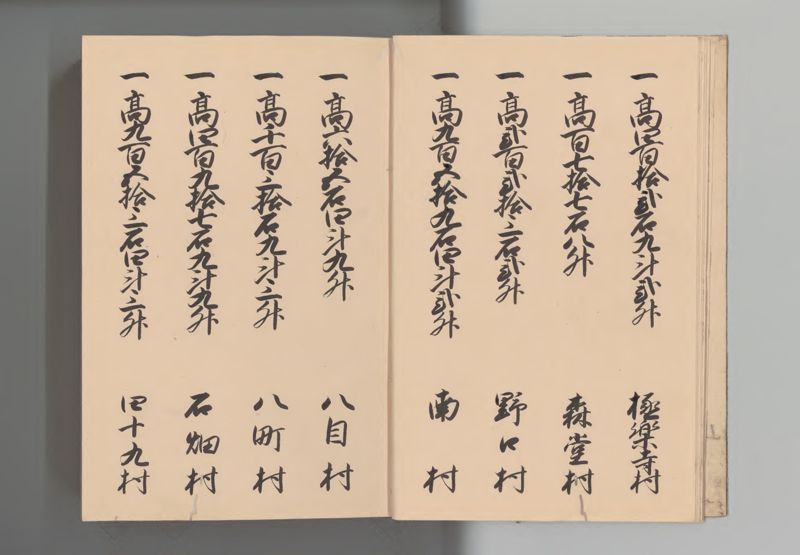 一 高四百拾弐石九斗弐升 極楽寺村
一 高百七拾七石八升 森堂村
一 高弐百弐拾三石弐升 野口村
一 高九百五拾九石四斗弐升 南村
一 高六拾五石四斗九升 八目村
一 高千百三拾石九斗三升 八町村
一 高四百九拾七石九斗九升 石畑村
一 高九百五拾三石四斗三升 四十九村